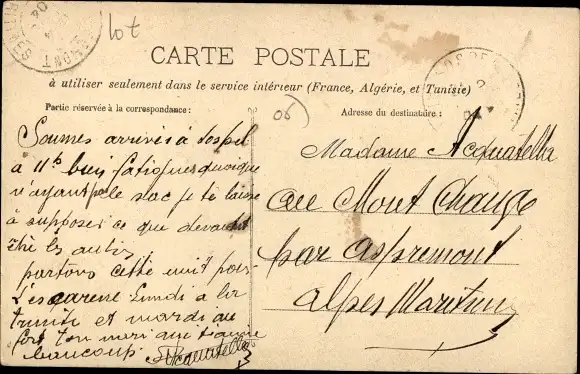 lot
CARTE POSTALE
à utiliser seulement dans le service intérieur (France, Algérie, et Tunisie)
Partie réservée à la correspondance :
06
Adresse du destinataire :
Sommes arrivés à Sospel
à 11h bien fatigués quoique
n'ayant pas le sac je te laisse
à supposer ce que devaient
être les autres
partons cette nuit pour
L'escarène Lundi à la
trinité et mardi au
fort ton mari qui t'aime
beaucoup
Acquatella
Madame Acquatella
au Mont Chauve
par Aspremont
Alpes Maritimes